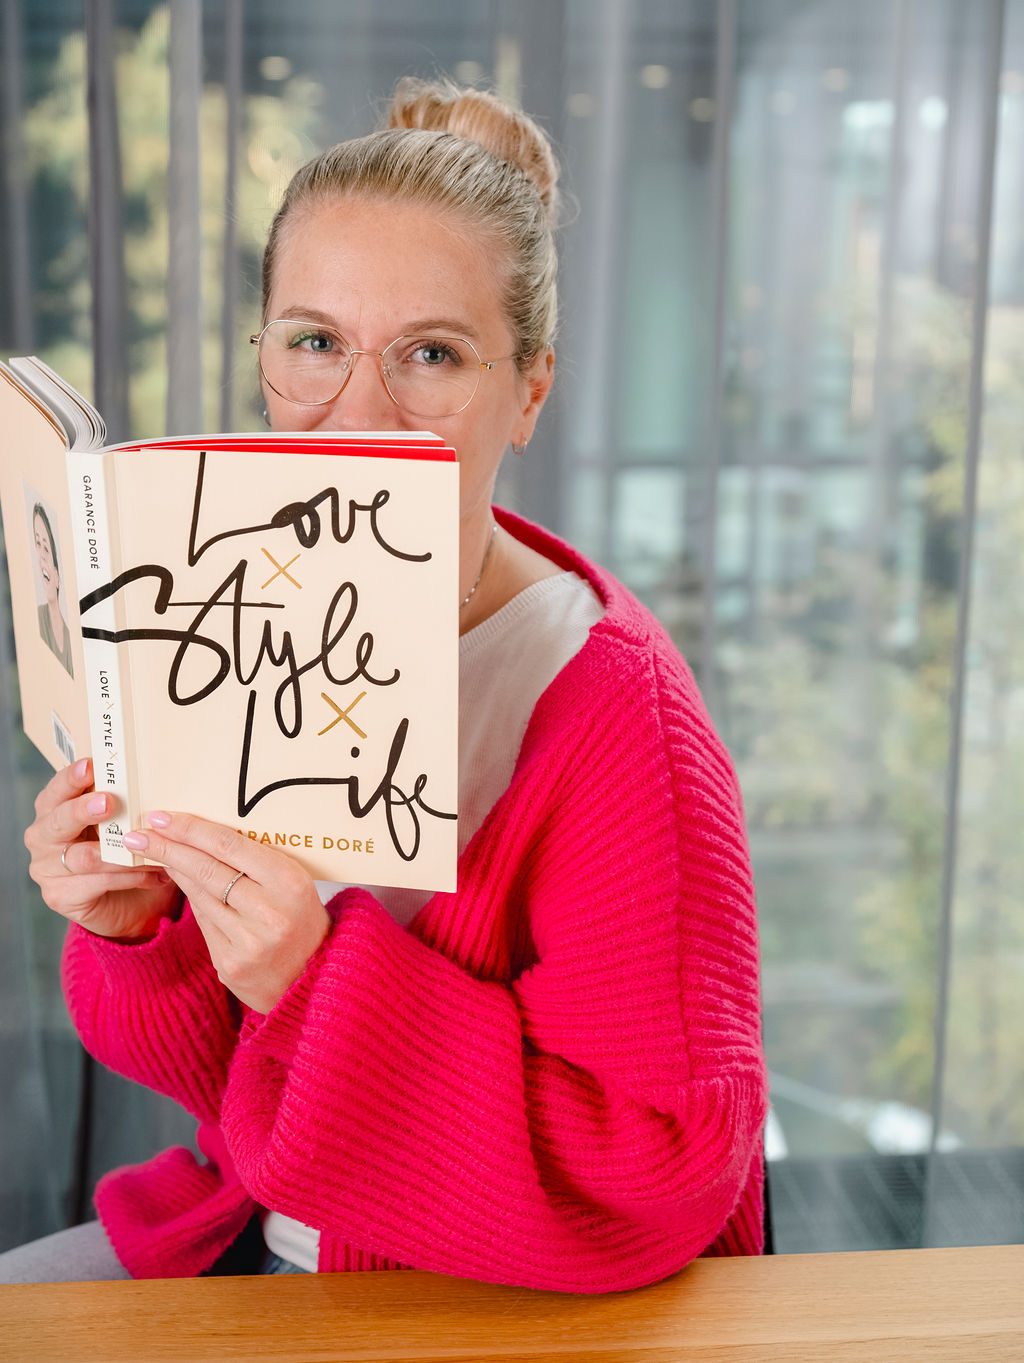 GARANCE DORÉ
LOVE × STYLE × LIFE
Love
×
Style
×
Life
ARANCE DORÉ